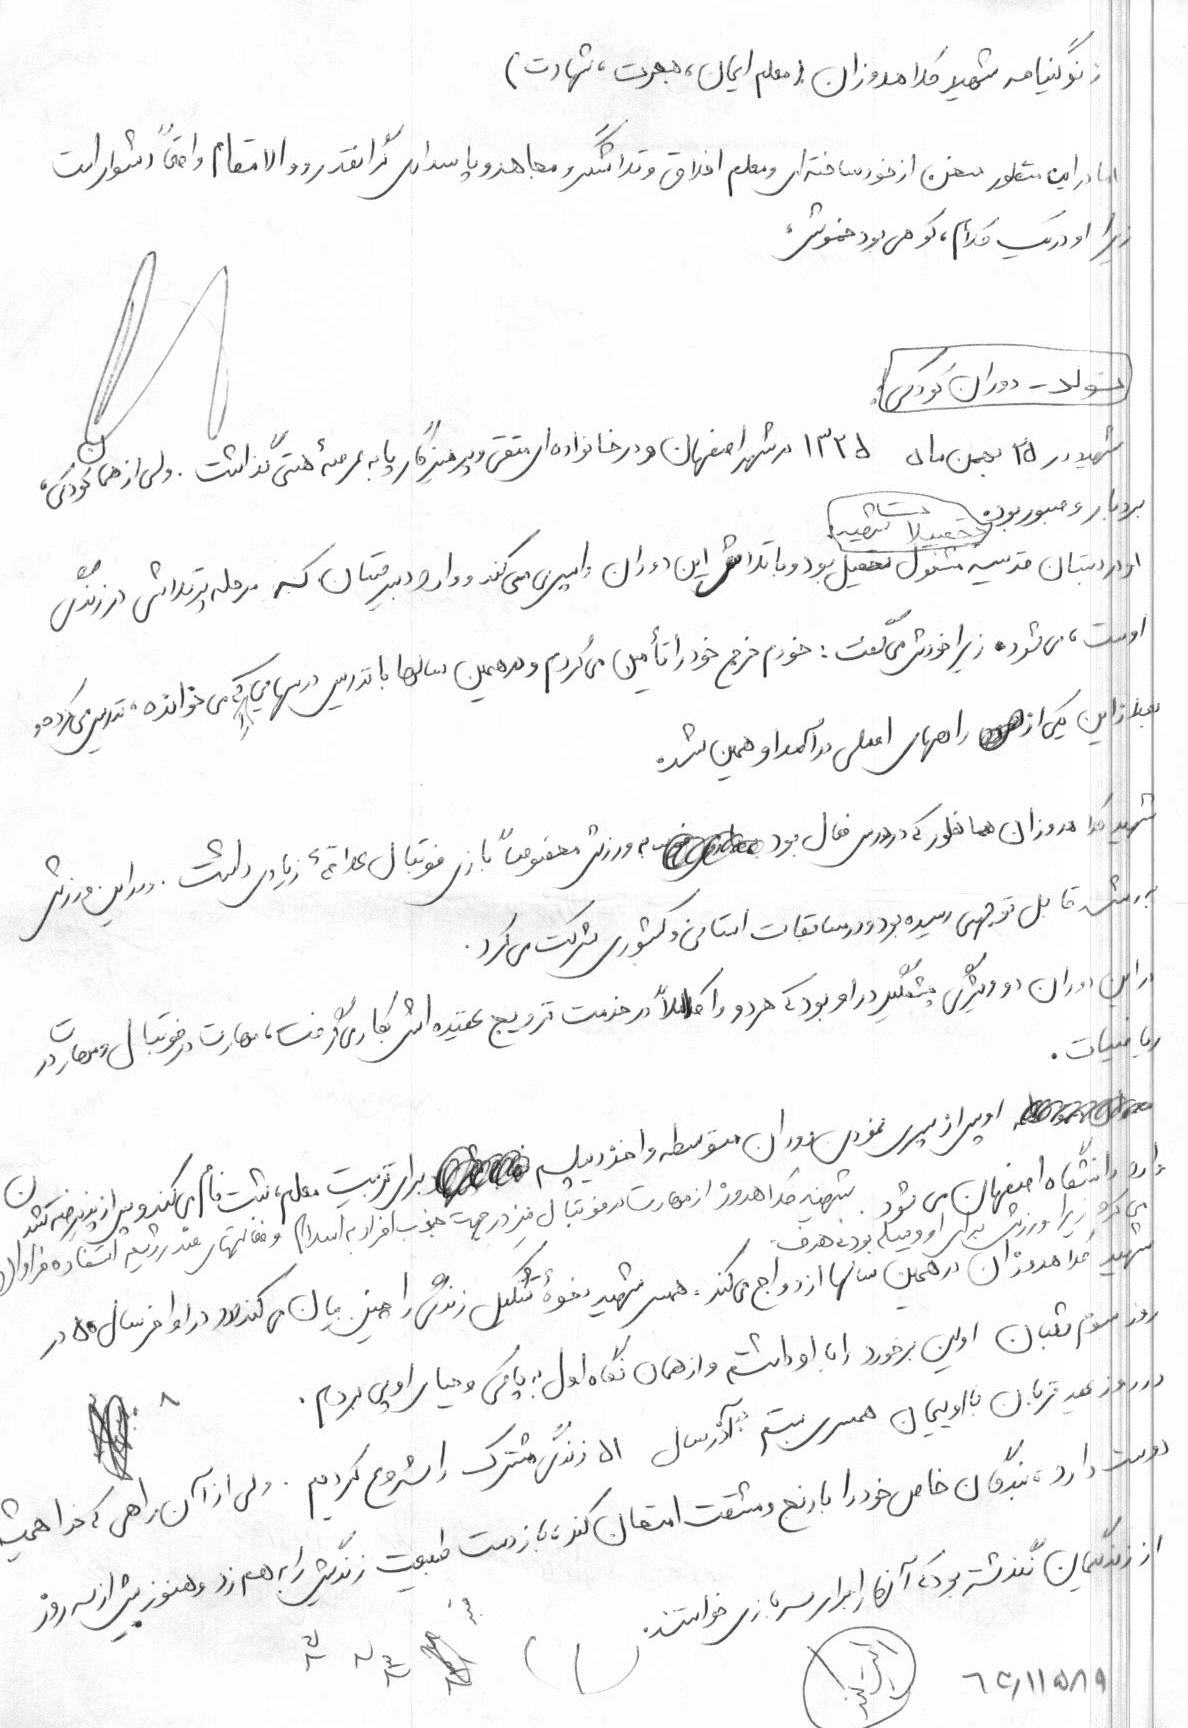 زندگینامه شهید خداهدوزان (معلم ایمان، هجرت، شهادت)
اما در این سطور سخن از خودساخته‌ای و معلم اخلاق و تلاشگر و مجاهد و پاسداری گرانقدر و والامقام واقعاً دشوار است
زیرا او در یک کلام، کوهی بود خموش،
تولد - دوران کودکی
شهید در ۲۵ بهمن ماه ۱۳۲۵ در شهر اصفهان و در خانواده‌ای متقی و پرهیزگار پا به عرصهٔ هستی گذاشت. ولی از همان کودکی،
بردبار و صبور بود.
تحصیلات شهید
او در دبستان قدسیه مشغول تحصیل بود و با تلاش این دوران را سپری می‌کند و وارد دبیرستان که مرحله پرتلاشی در زندگی
اوست، می‌شود. زیرا خودش می‌گفت: خودم خرج خود را تأمین می‌کردم و در همین سالها با تدریس درسهایی را که می‌خوانده، تدریس می‌کرده و
بعد از این یکی از راههای اصلی درآمد او همین شد.
شهید خداهدوزان همانطور که در درس فعال بود به ورزش مخصوصاً بازی فوتبال علاقهٔ زیادی داشت. در این ورزش
به رشد قابل توجهی رسیده بود و در مسابقات استانی و کشوری شرکت می‌کرد.
در این دوران دو ویژگی چشمگیر در او بود که هر دو را کاملاً در خدمت ترویج عقیده‌اش بکار می‌گرفت، مهارت در فوتبال و مهارت در
ریاضیات.
او پس از سپری نمودن دوران متوسطه و اخذ دیپلم برای تربیت معلم، ثبت نام می‌کند و پس از پذیرفته شدن
وارد دانشگاه اصفهان می‌شود. شهید خداهدوز از مهارت در فوتبال نیز در جهت جذب افراد به اسلام و فعالیتهای ضد رژیم استفاده فراوان
می‌کرد زیرا ورزش برای او وسیله بود نه هدف.
شهید خداهدوزان در همین سالها ازدواج می‌کند. همسر شهید نحوهٔ تشکیل زندگی را چنین بیان می‌کند: در اواخر سال ۵۰ در
روز سوم شعبان اولین برخورد را با او داشتم و از همان نگاه اول به پاکی و حیای او پی بردم.
در روز عید قربان با او پیمان همسری بستم آذر سال ۵۱ زندگی مشترک را شروع کردیم. ولی از آن راهی که خدا همیشه
دوست دارد، بندگان خاص خود را با رنج و مشقت امتحان کند، باز دست طبیعت زندگیش را به هم زد و هنوز بیش از سه روز
از زندگیمان نگذشته بود که آن را برای سربازی خواستند.